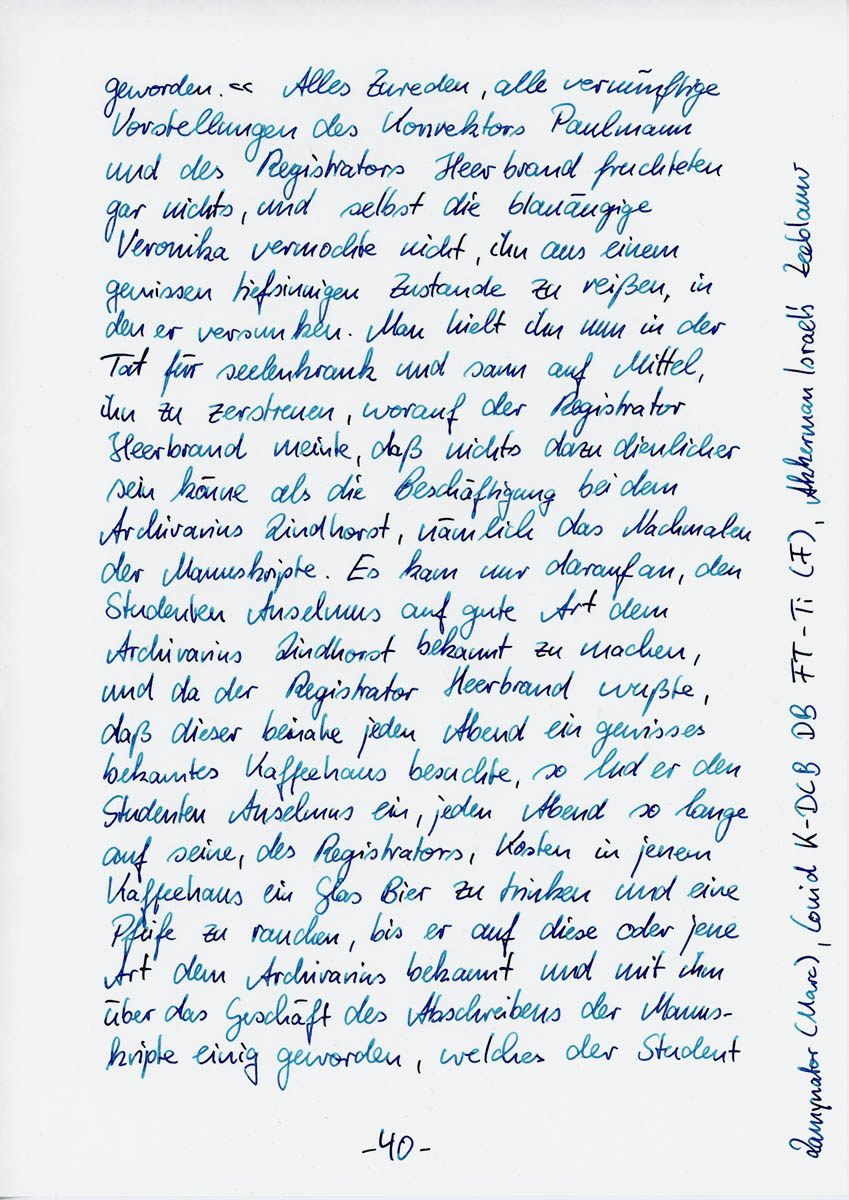 geworden.« Alles Zureden, alle vernünftige
Vorstellungen des Konrektors Paulmann
und des Registrators Heerbrand fruchteten
gar nichts, und selbst die blauäugige
Veronika vermochte nicht, ihn aus einem
gewissen tiefsinnigen Zustande zu reißen, in
den er versunken. Man hielt ihn nun in der
Tat für seelenkrank und sann auf Mittel,
ihn zu zerstreuen, worauf der Registrator
Heerbrand meinte, daß nichts dazu dienlicher
sein könne als die Beschäftigung bei dem
Archivarius Lindhorst, nämlich das Nachmalen
der Manuskripte. Es kam nur darauf an, den
Studenten Anselmus auf gute Art dem
Archivarius Lindhorst bekannt zu machen,
und da der Registrator Heerbrand wußte,
daß dieser beinahe jeden Abend ein gewisses
bekanntes Kaffeehaus besuchte, so lud er den
Studenten Anselmus ein, jeden Abend so lange
auf seine, des Registrators, Kosten in jenem
Kaffeehaus ein Glas Bier zu trinken und eine
Pfeife zu rauchen, bis er auf diese oder jene
Art dem Archivarius bekannt und mit ihm
über das Geschäft des Abschreibens der Manus-
kripte einig geworden, welches der Student
-40-
Lamynator (Marc), Conid K-DCB DB FT-Ti (F), Akkerman Israëls